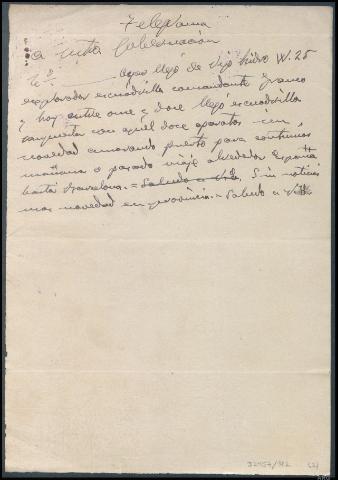 Telegrama
a mtro Gobernación
Nº 8 ayer llegó de Vigo hidro W. 25
explorador escuadrilla comandante Franco
y hoy entre once y doce llegó escuadrilla
compuesta con aquel doce aparatos sin
novedad amarando puerto para continuar
mañana o pasado viaje alrededor España
hasta Barcelona. = Saludo a V.E. Sin noticias
mas novedad en provincia. = Saludo a V.E.
32457/42